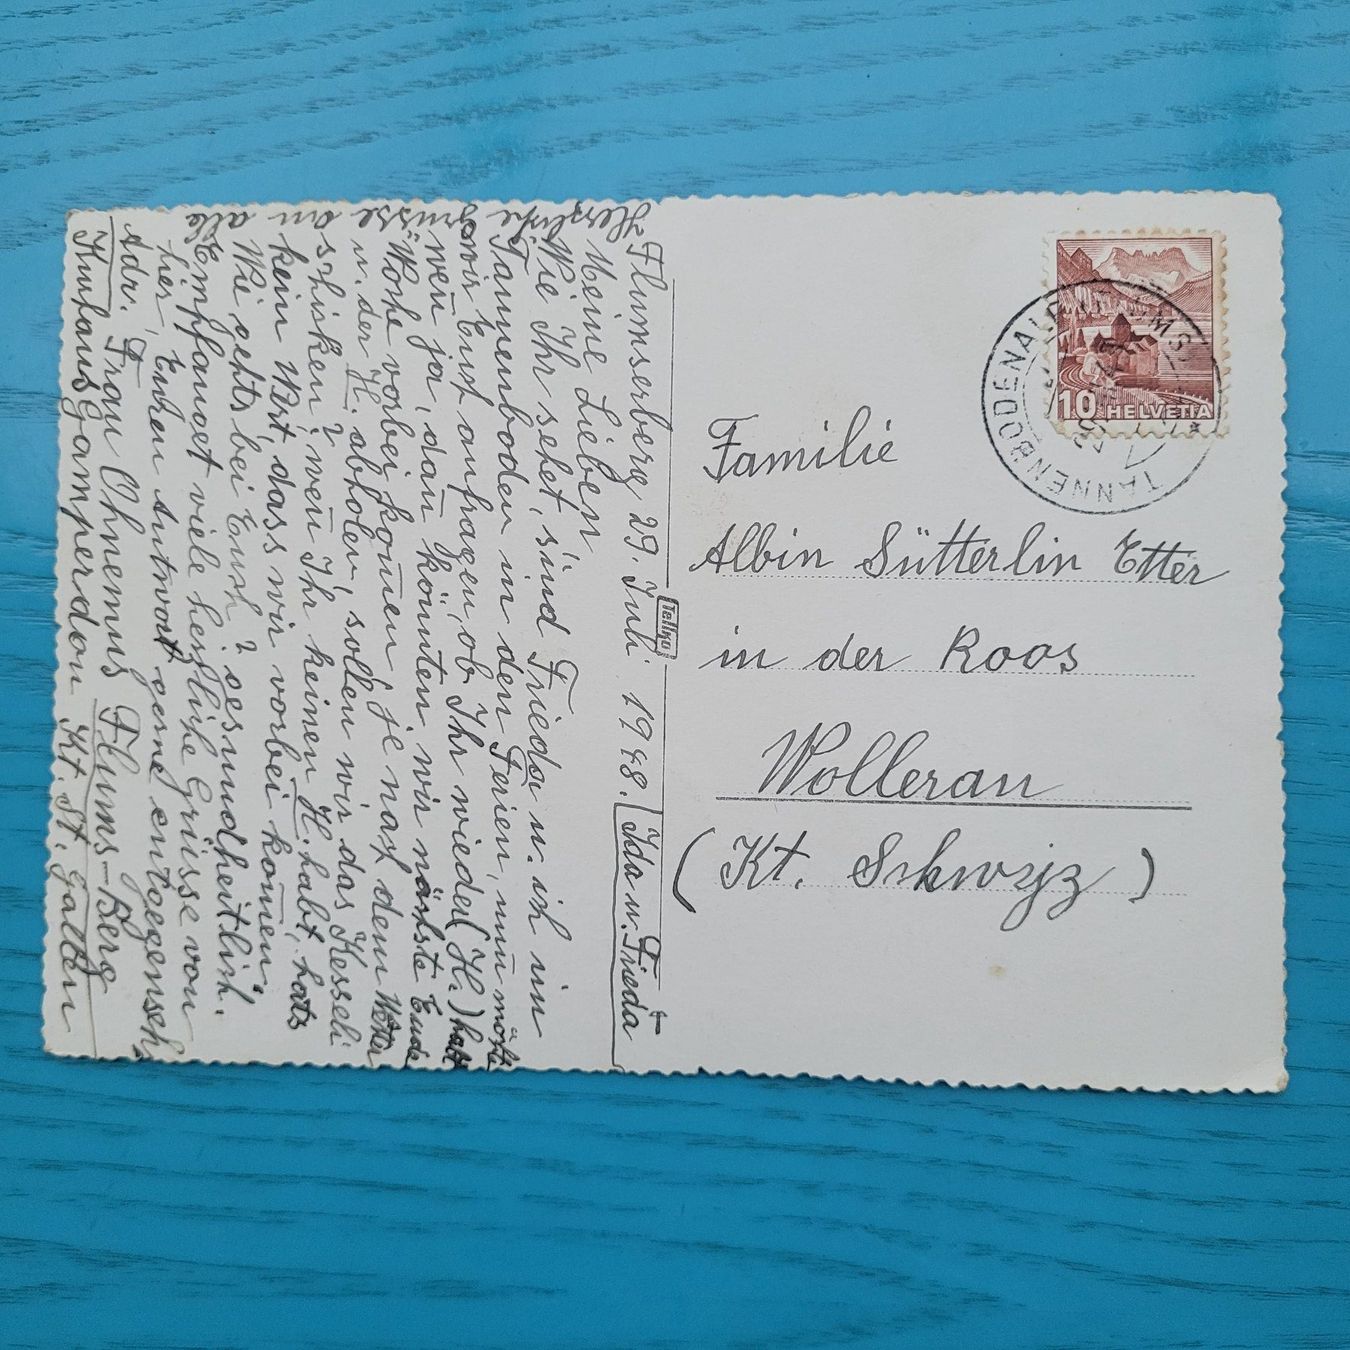 Flumserberg 29. Juli 1948.
Meine Lieben
Wie Ihr sehet, sind Frieda u. ich im
Tannenboden in den Ferien, nun möcht
wir Euch anfragen, ob Ihr wieder (H.) habt
weñ ja, dañ könnten wir nächste Ende
Woche vorbei kom̄en, je nach dem Wetter
u. der H. abholen, sollen wir das Kesseli
schicken? weñ Ihr keinen H. habt, hats
kein Wert, dass wir vorbei kom̄en.
Wie gehts bei Euch? gesundheitlich.
Empfanget viele herzliche Grüsse von
hier, Euren Antwort gerne entgegenseh
Adr. Frau Ohnemus Flums-Berg
Kurhaus Gamperdon Kt. St. Gallen
Ida u. Frieda
Herzliche
Grüsse
an
alle
Tellko
Familie
Albin Sütterlin Etter
in der Roos
Wollerau
(Kt. Schwyz)
10 HELVETIA
TANNENBODENALP